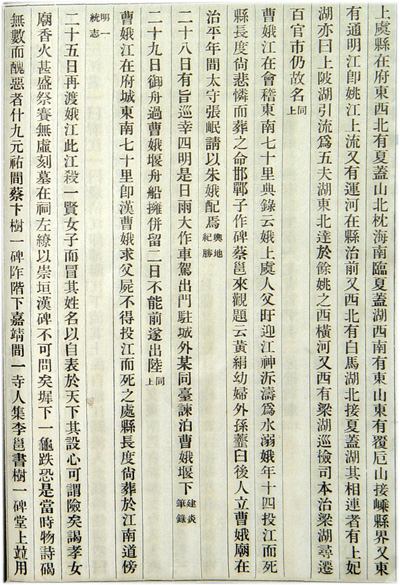 上虞縣在府東西北有夏蓋山北枕海南臨夏蓋湖西南有東山東有覆卮山接嵊縣界又東
有通明江卽姚江上流又有運河在縣治前又西北有白馬湖北接夏蓋湖其相連者有上妃
湖亦曰上陂湖引流爲五夫湖東北達於餘姚之西橫河又西有梁湖巡檢司本治梁湖尋遷
百官市仍故名同上
曹娥江在會稽東南七十里典錄云娥上虞人父旴迎江神泝濤爲水溺娥年十四投江而死
縣長度尙悲憐而葬之命邯鄲子作碑蔡邕來觀題云黃絹幼婦外孫虀臼後人立曹娥廟在
治平年間太守張岷請以朱娥配焉輿地紀勝
二十八日有旨巡幸四明是日雨大作車駕出門駐城外某同臺諫泊曹娥堰下建炎筆錄
二十九日御舟過曹娥堰舟船擁併留二日不能前遂出陸同上
曹娥江在府城東南七十里卽漢曹娥求父屍不得投江而死之處縣長度尙葬於江南道傍
明一統志
二十五日再渡娥江此江殺一賢女子而冒其姓名以自表於天下其設心可謂險矣謁孝女
廟香火甚盛祭賽無虛刻墓在祠左繚以崇垣漢碑不可問矣墀下一龜趺恐是當時物詩碣
無數而醜惡者什九元祐間蔡卞樹一碑阼階下嘉靖間一寺人集李邕書樹一碑堂上竝用